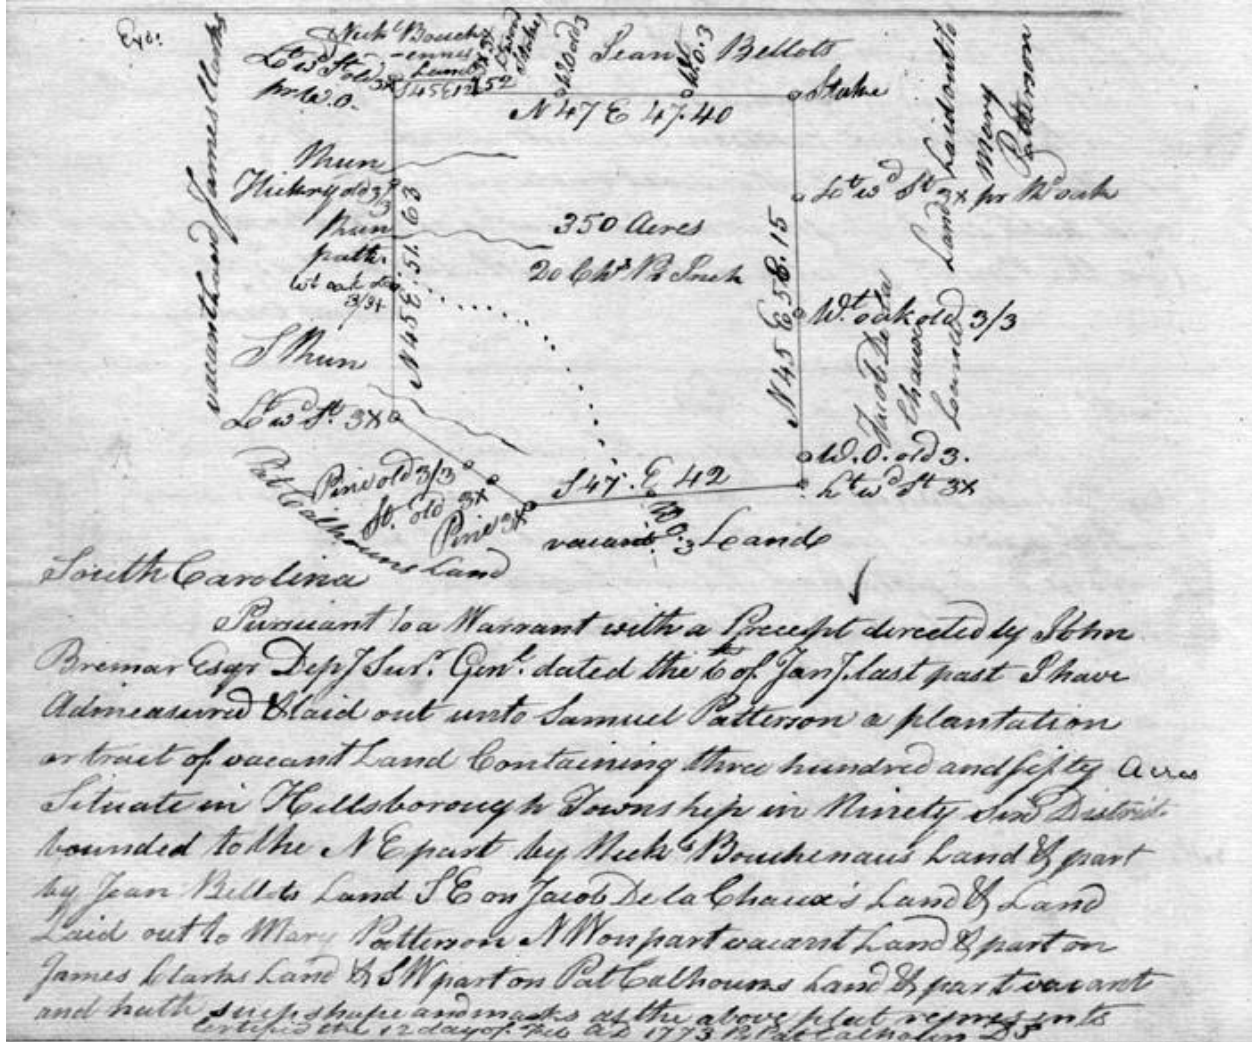 Exd.
Nichs Bouch
-ennes
Land
Lt wd St old 3x
pr W.O.
S45E12
52
W.O. old 3
Jean Bellots
W.O. 3
Stake
N 47 E 47.40
vacant land James Clarks
Laid out to
Mary
Patterson
Land
Run
Hickry old 3/3
Run
path
Wt oak old
3/3x
N 45 E. 51. 63
350 Acres
20 Chs Pr Inch
N 45 E 56.15
Lt wd St 3x pr Rd oak
Wt oak old 3/3
Jacob De la
Chaux
Land
S Run
Lt wd St. 3x
W.O. old 3.
Lt wd St 3x
Pine old 3/3
St. old 3x
Pine 3x
Pat Calhouns Land
S 47. E 42
W.O. 3
vacant Land
South Carolina
Pursuant to a Warrant with a Precept directed by John
Bremar Esqr Depy Surr. Genl. dated the 6th of Jany. last past I have
Admeasured & laid out unto Samuel Patterson a plantation
or tract of vacant Land Containing three hundred and fifty Acres
Situate in Hillsborough Township in Ninety Six District
bounded to the N E part by Nichs Bouchenaus Land & part
by Jean Bellots Land S E on Jacob De la Chaux's Land & Land
Laid out to Mary Patterson N W on part vacant Land & part on
James Clarks Land & S W part on Pat Calhouns Land & part vacant
and hath such shape and marks as the above plat represents
Certified the 12 day of Feb A D 1773 Pr Pat Calhoun D S